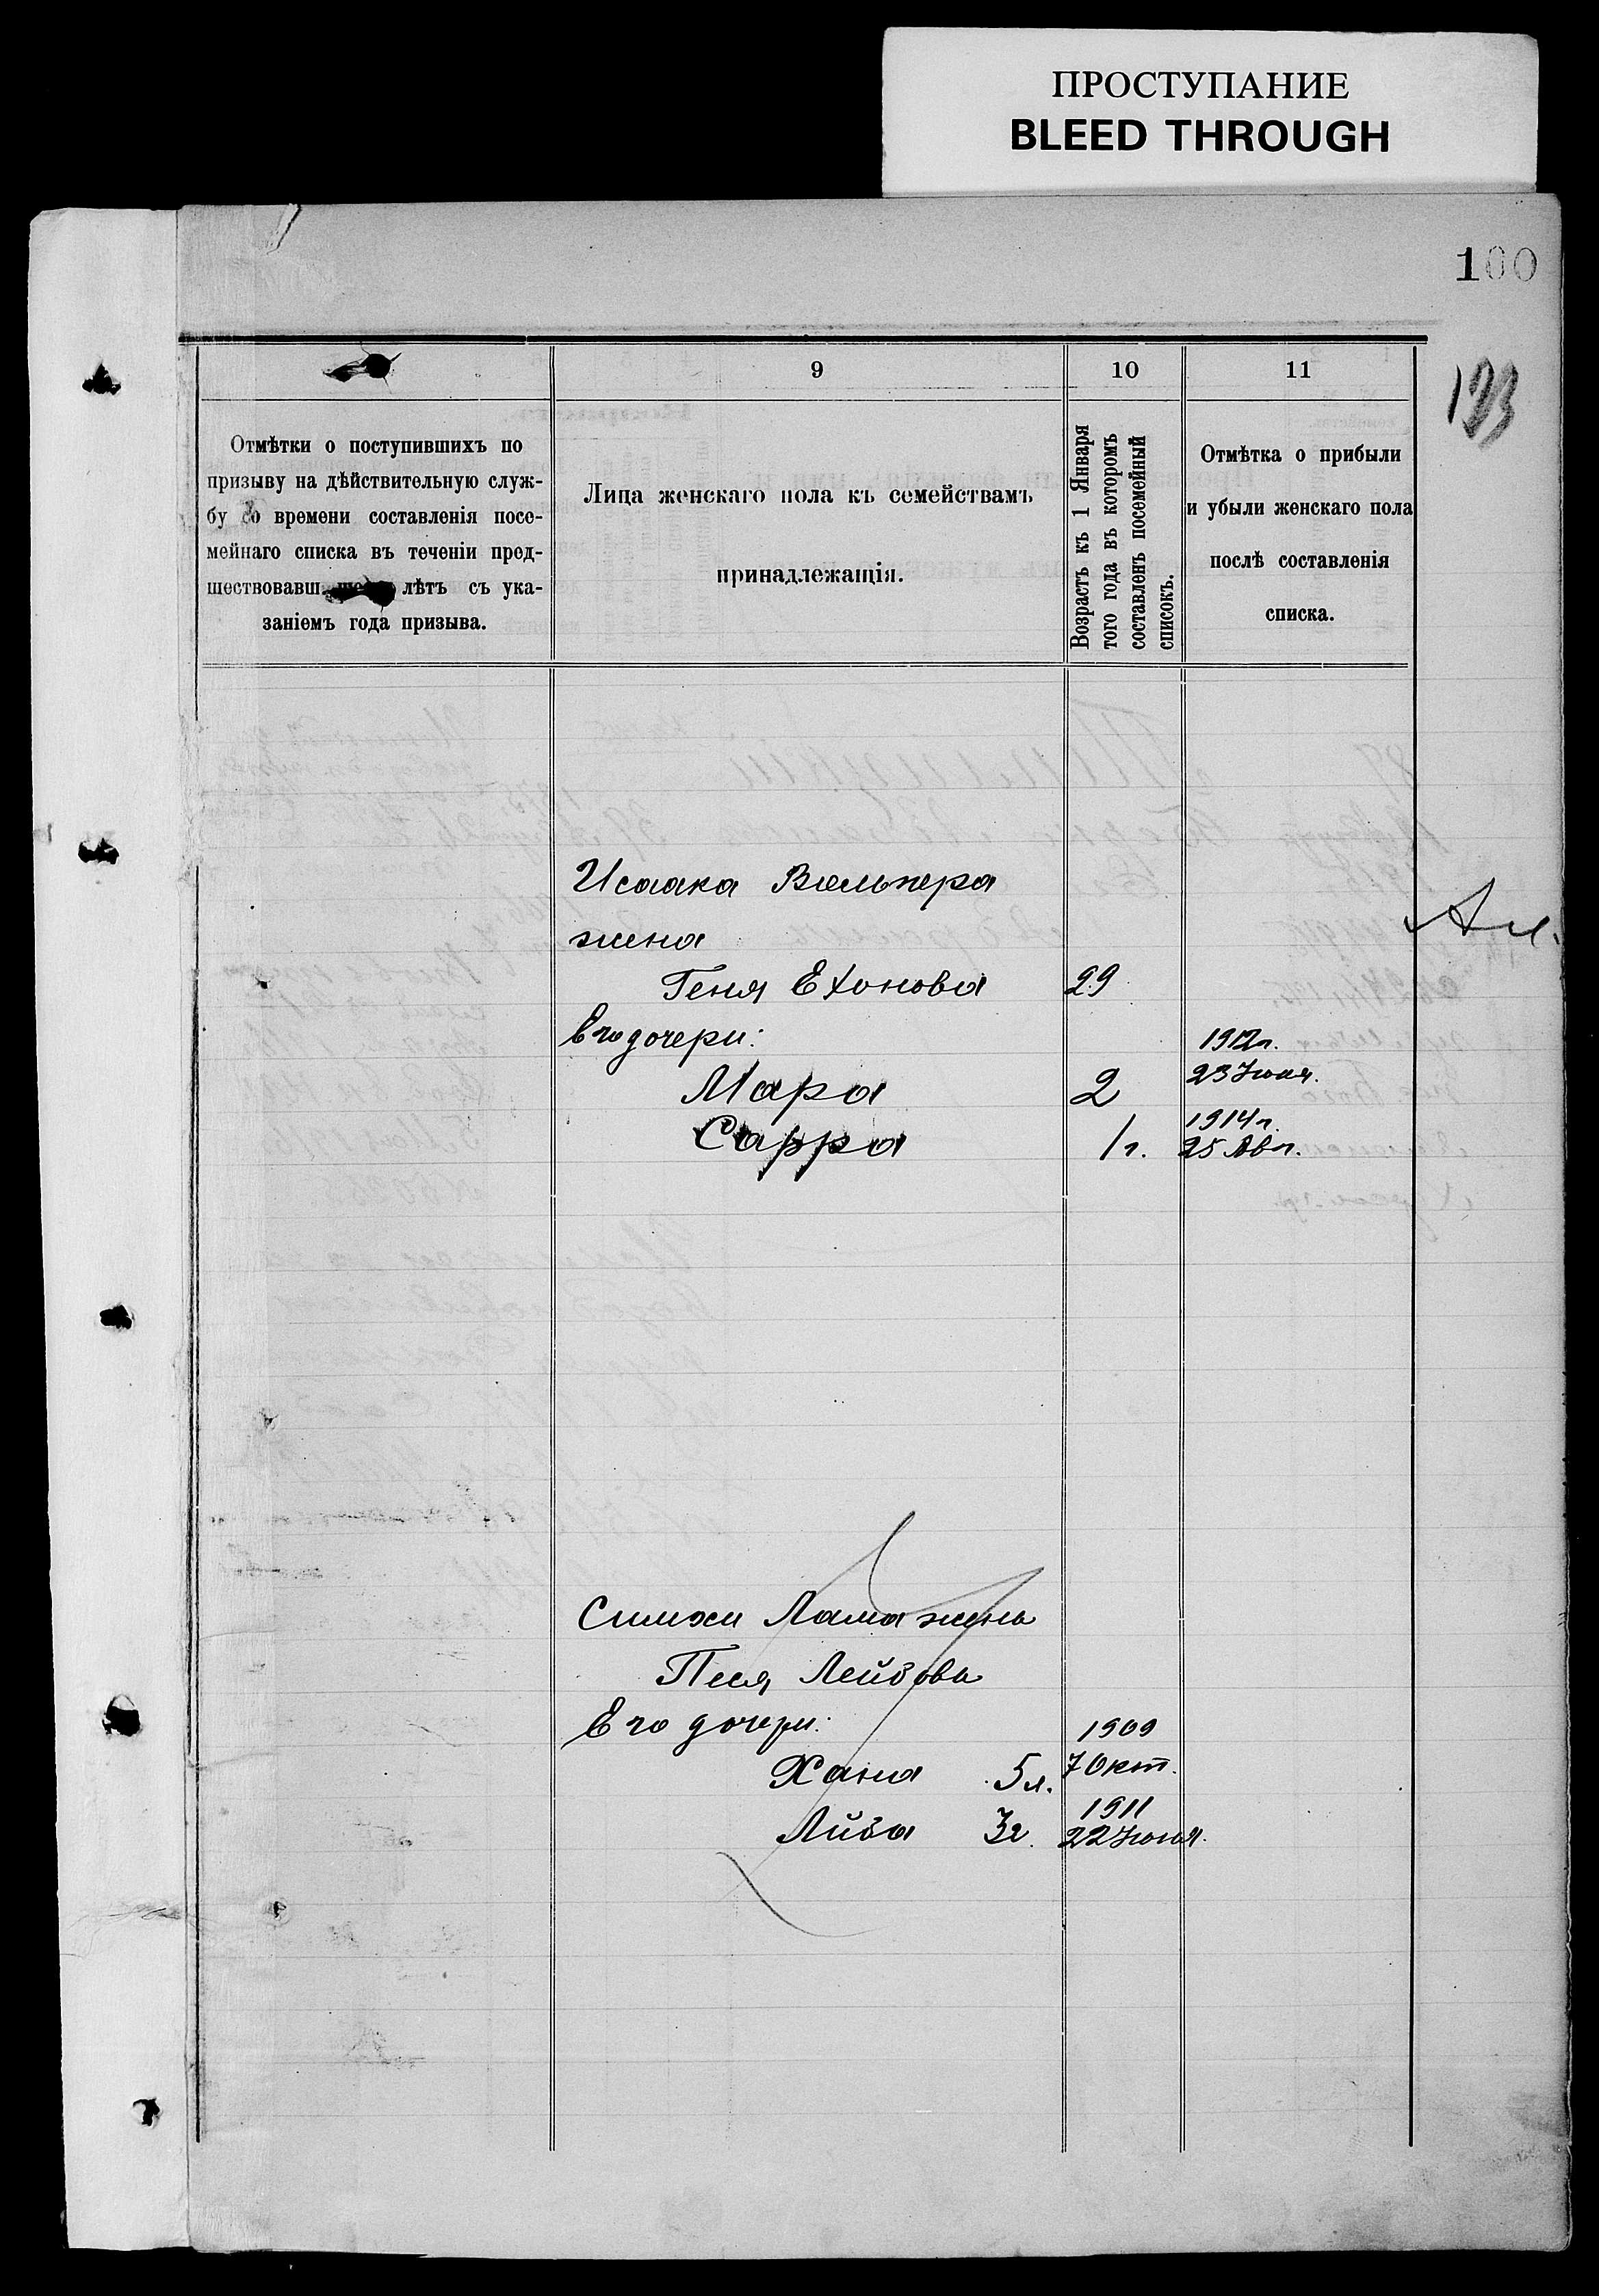 ПРОСТУПАНИЕ
BLEED THROUGH
100
123
9
10
11
Отмѣтки о поступившихъ по
призыву на дѣйствительную служ-
бу со времени составленія посе-
мейнаго списка въ теченіи пред-
шествовавш. лѣтъ съ ука-
заніемъ года призыва.
Лица женскаго пола къ семействамъ
принадлежащія.
Возрастъ къ 1 Января
того года въ которомъ
составленъ посемейный
списокъ.
Отмѣтка о прибыли
и убыли женскаго пола
послѣ составленія
списка.
Исаака Вольпера
жена
Геня Ехонова 29
Его дочери: 1912г.
Мара 2 23 Іюня.
Сарра 1г. 1914г.
25 Авг.
Симхи Лама жена
Песя Лейбова
Его дочери: 1909
Хана 5 л. 7 Окт.
1911
Либа 3г. 22 Іюня.